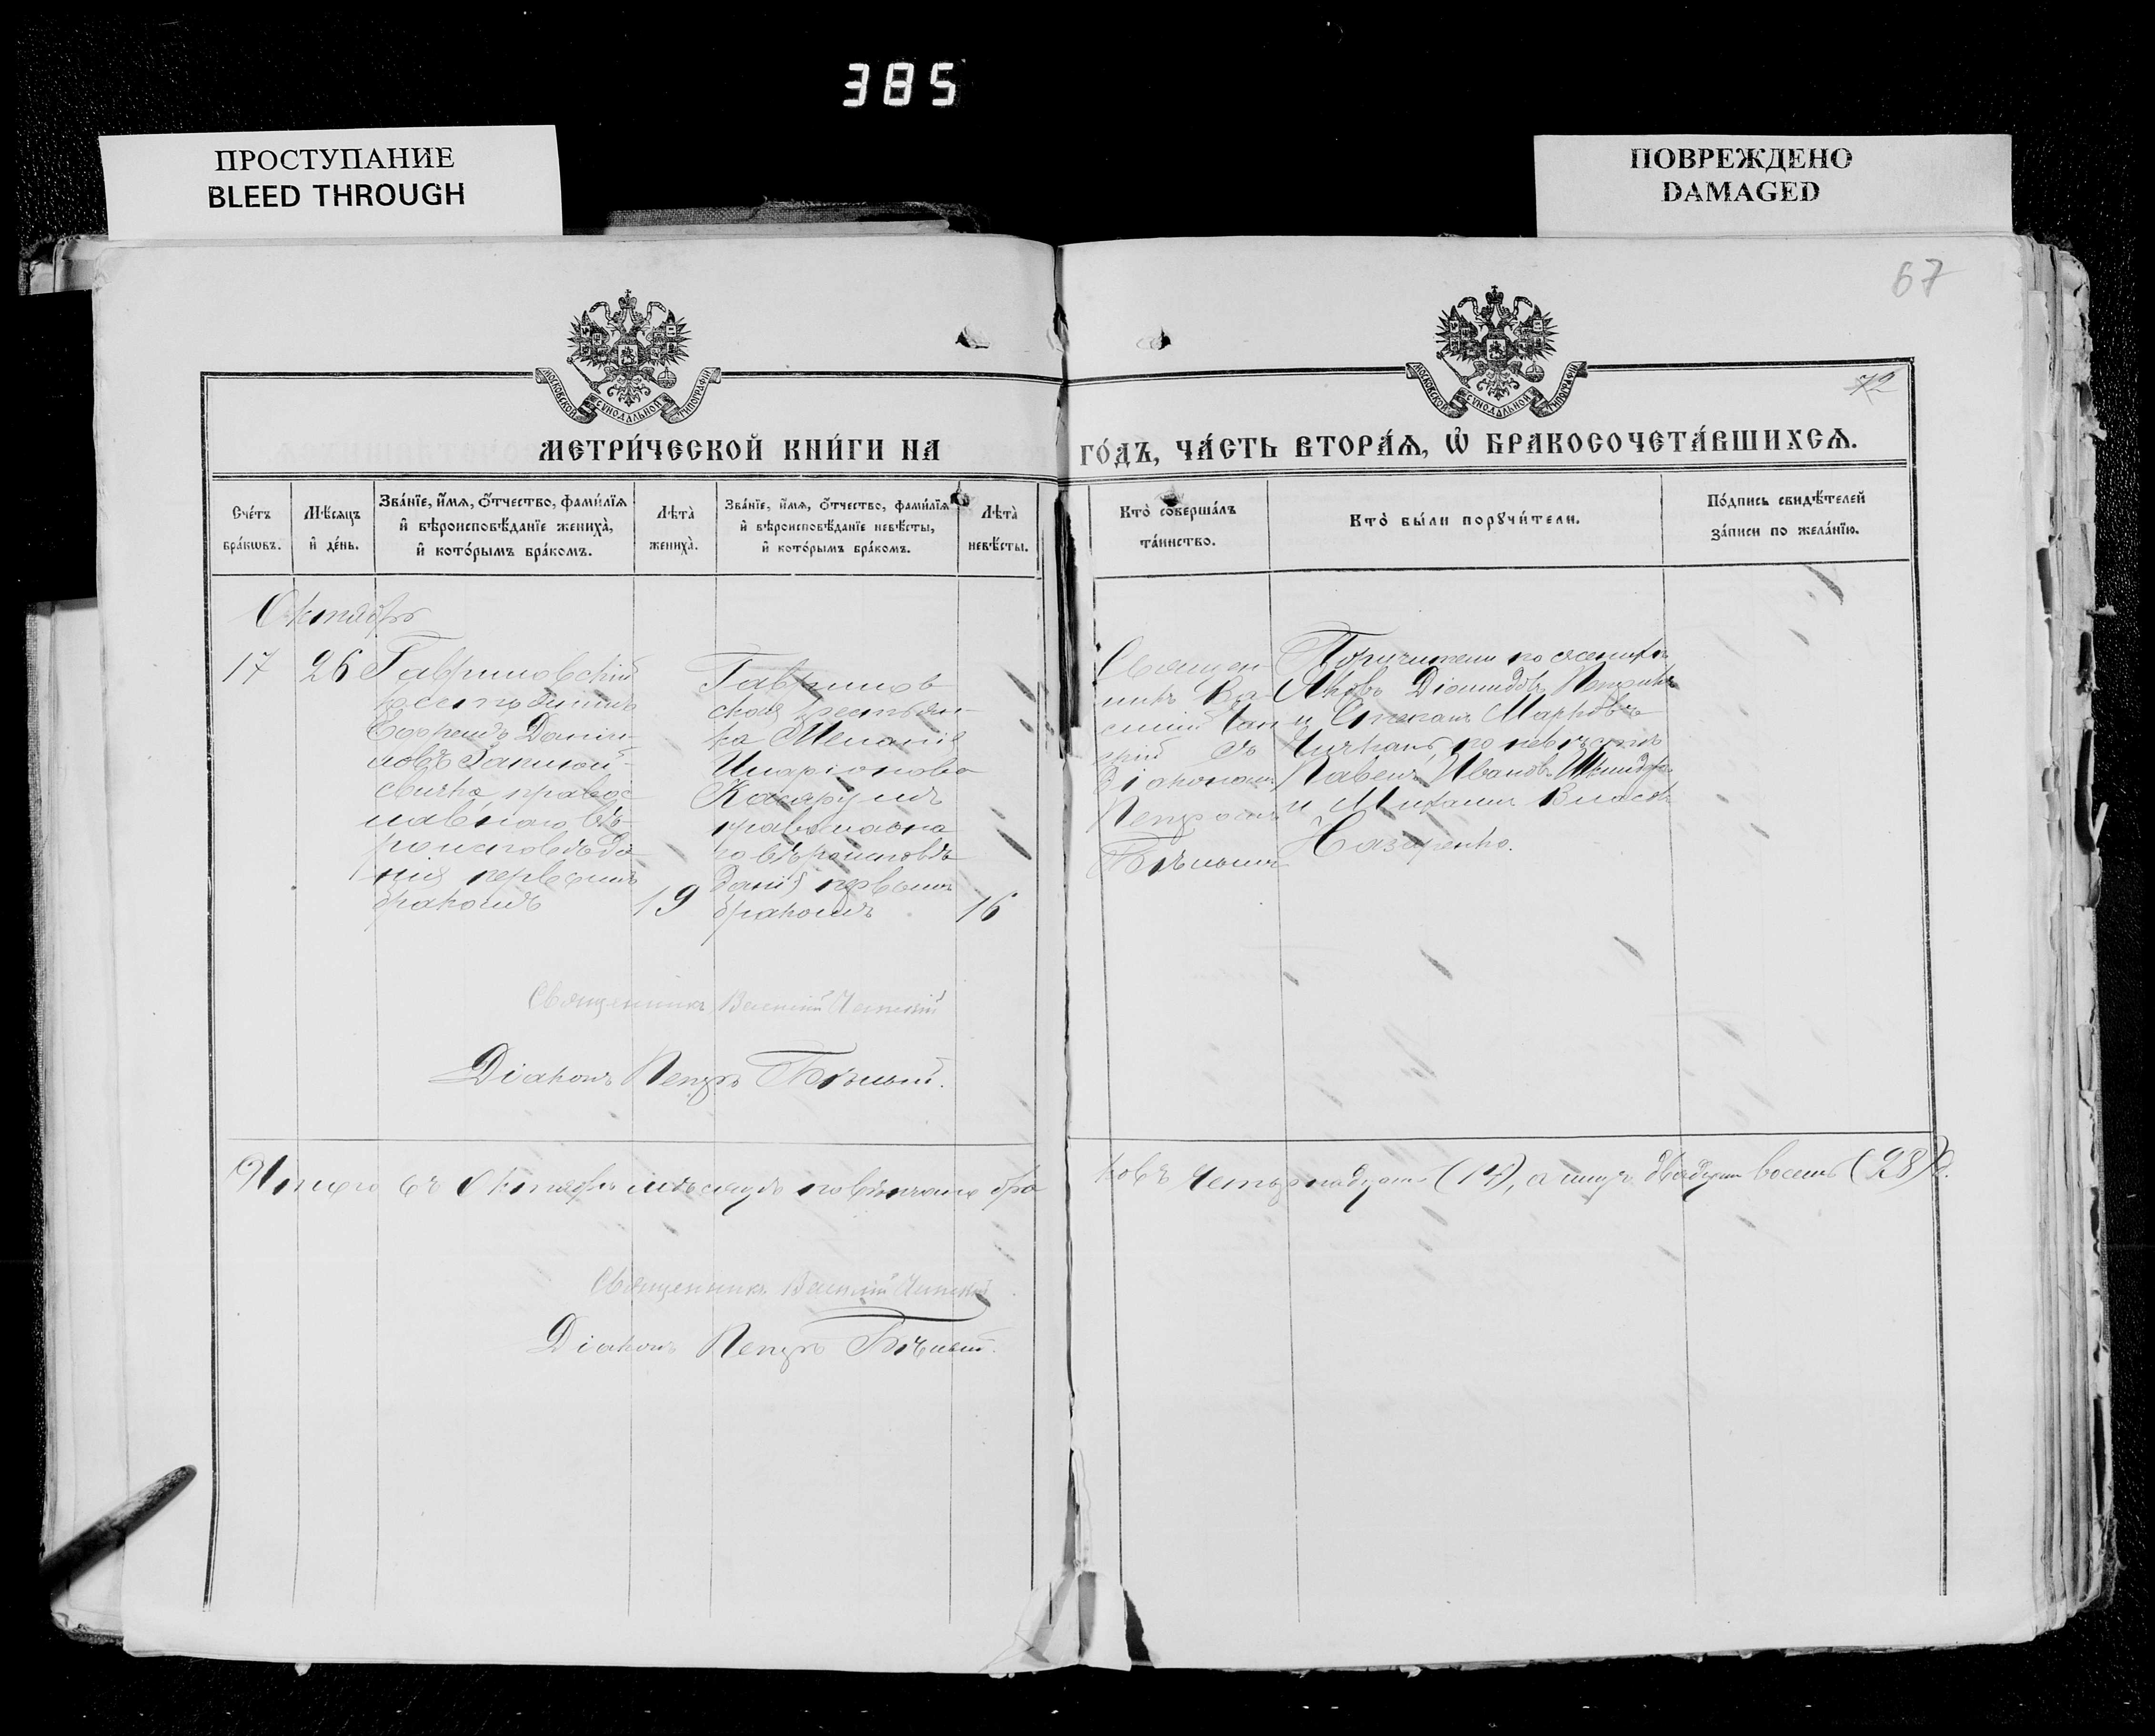 385
ПРОСТУПАНИЕ
BLEED THROUGH
ПОВРЕЖДЕНО
DAMAGED
67
МОСКОВСКОЙ СѴНОДАЛЬНОЙ ТИПОГРАФІИ
МОСКОВСКОЙ СѴНОДАЛЬНОЙ ТИПОГРАФІИ
72
МЕТРИ́ЧЕСКОЙ КНИ́ГИ НА
ГО́ДЪ, ЧА́СТЬ ВТОРА́Ѧ, Ѡ҆ БРАКОСОЧЕТА́ВШИХСѦ.
Сче́тъ
бра́кѡвъ.
Мѣ́сяцъ
и҆ де́нь.
Зва́нїе, и҆́мѧ, ѻ҆́тчество, фами́лїѧ
и҆ вѣроисповѣ́данїе жениха̀,
и҆ кото́рымъ бра́комъ.
Лѣта̀
жениха̀.
Зва́нїе, и҆́мѧ, ѻ҆́тчество, фами́лїѧ
и҆ вѣроисповѣ́данїе невѣ́сты,
и҆ кото́рымъ бра́комъ.
Лѣта̀
невѣ́сты.
Кто̀ соверша́лъ
та́инство.
Кто̀ бы́ли порꙋчи́тели.
По́дпись свидѣ́телей
за́писи по жела́нїю.
Октябрь
17
26
Гавриловскій
крестьянинъ
Ефремъ Данiи-
ловъ
правос-
лавнаго вѣ-
роисповѣда-
нія первымъ
бракомъ
19
Гаврилов
ская крестьян-
ка Меланія
Иларіонова
православна
го вѣроисповѣ
данія первымъ
бракомъ
16
Священ-
никъ Ва-
силій
съ
Діакономъ
Петромъ
Бѣлымъ
Поручители по женихѣ
Яковъ Діомидовъ
и Степанъ Марковъ
по невѣстѣ
Павелъ Ивановъ
и Михаилъ Власовъ
Назаренко.
Священникъ Василій
Діаконъ Петръ Бѣлый.
Итого въ Октябрѣ мѣсяцѣ повѣнчано бра
ковъ четырнадцать (14), а лицъ двадцать восемь (28).
Священникъ Василій
Діаконъ Петръ Бѣлый.